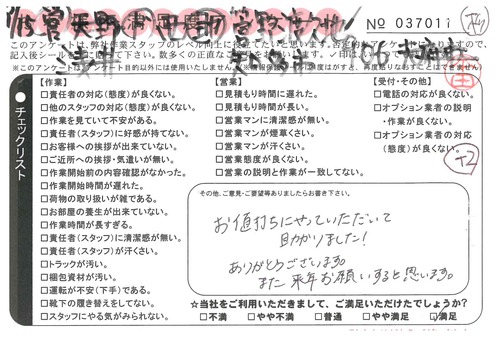 No 037011
このアンケートは、弊社作業スタッフのレベル向上に役立てたいと思います。
チェックリスト
【作業】
□責任者の対応(態度)が良くない。
□他のスタッフの対応(態度)が良くない。
□作業を見ていて不安がある。
□責任者(スタッフ)に好感が持てない。
□お客様への挨拶が出来ていない。
□ご近所への挨拶・気遣いが無い。
□作業開始前の内容確認がなかった。
□作業開始時間が遅れた。
□荷物の取り扱いが雑である。
□お部屋の養生が出来ていない。
□作業時間が長すぎる。
□責任者(スタッフ)に清潔感が無い。
□責任者(スタッフ)が汗くさい。
□トラックが汚い。
□梱包資材が汚い。
□運転が不安(下手)である。
□靴下の履き替えをしてない。
□スタッフにやる気がみられない。
【営業】
□見積もり時間に遅れた。
□見積もり時間が長い。
□営業マンに清潔感が無い。
□営業マンが煙草くさい。
□営業マンが汗くさい。
□営業態度が良くない。
□営業の説明と作業が一致してない。
【受付・その他】
□電話の対応が良くない。
□オプション業者の説明
・作業が良くない。
□オプション業者の対応
(態度)が良くない。
+2
その他、ご意見・ご要望等ありましたらお書き下さい。
お値打ちにやっていただいて
助かりました!
ありがとうございます。
また 来年お願いすると思います。
☆当社をご利用いただきまして、ご満足いただけたでしょうか?
□不満 □やや不満 □普通 □やや満足 ☑満足